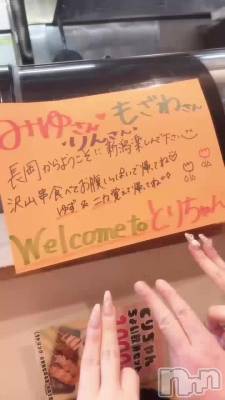 みゆさん♡もざわさん
りんさん
長岡からようこそ!!新潟楽しんで下さい
沢山串食べてお腹いっぱいで帰ってね♡
覚えて帰ってね
Welcome to とりちゃん
nn